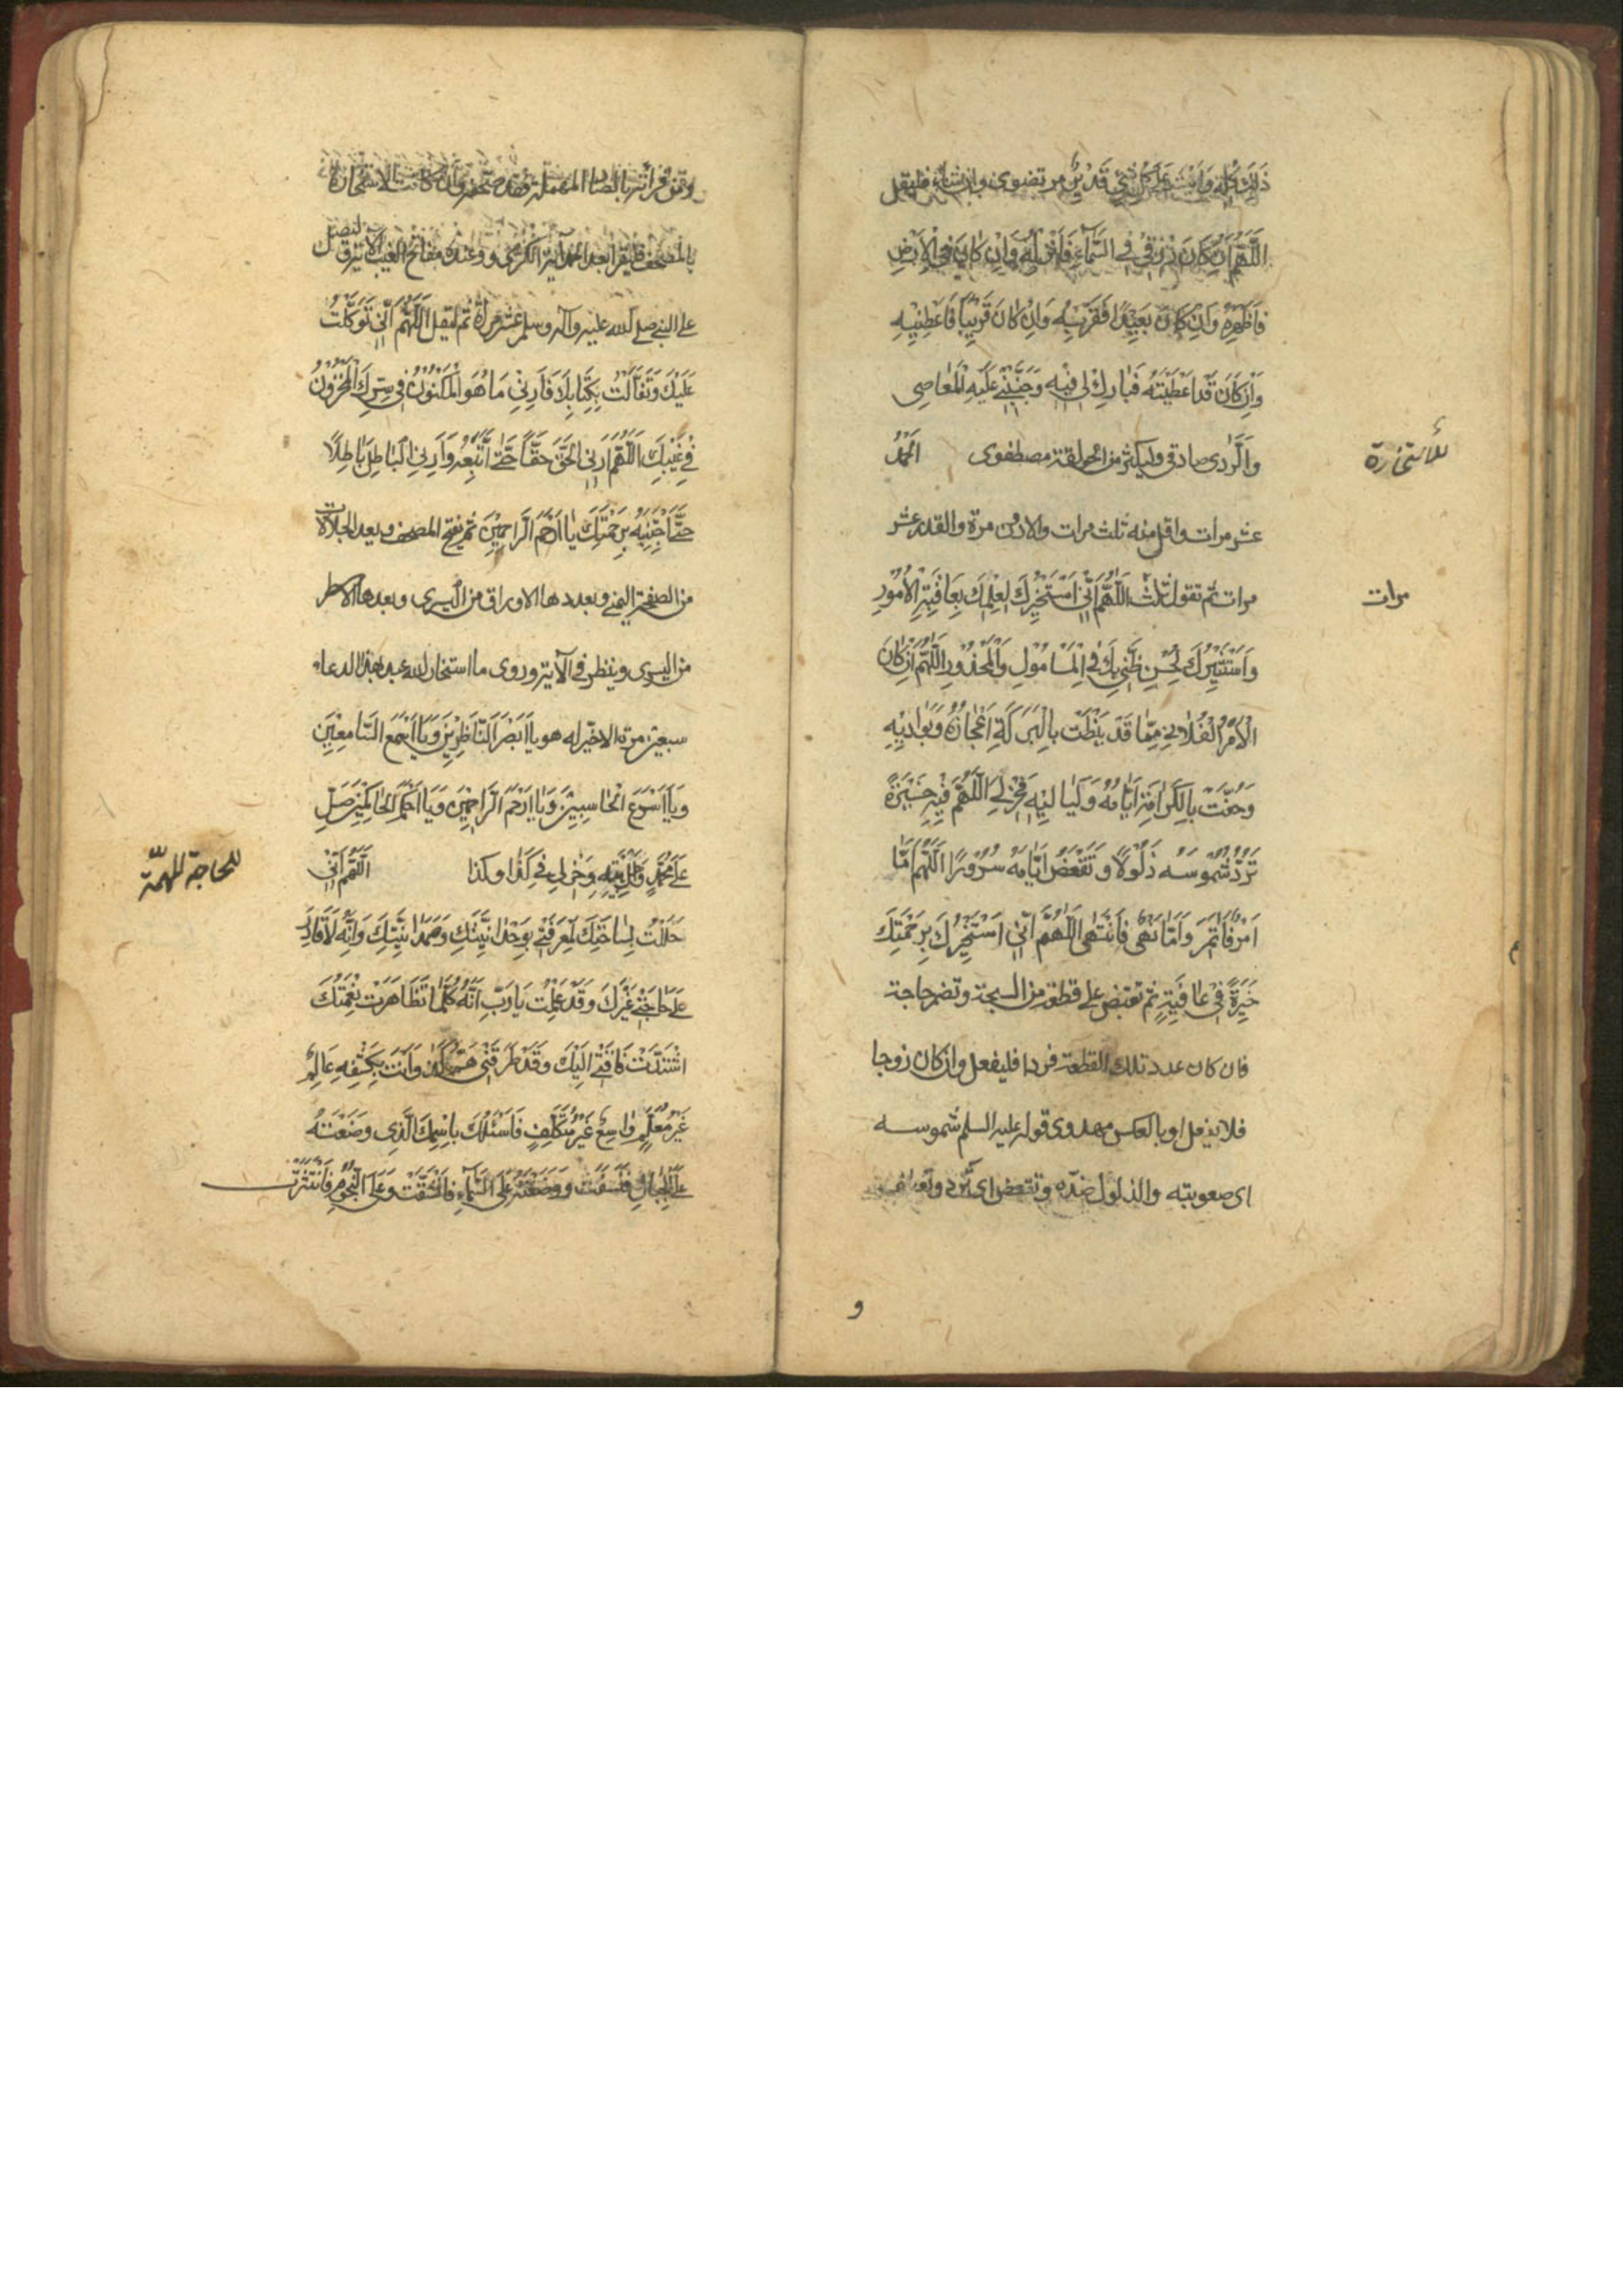 ذَلِكَ كُلِّهِ وَاَنْتَ عَلٰى كُلِّ شَيْءٍ قَدِيْرٌ مرتضوى وان شاء فليقل
اَللّٰهُمَّ اِنْ كَانَ رِزْقِيْ فِي السَّمَآءِ فَاَنْزِلْهُ وَاِنْ كَانَ فِي الْاَرْضِ
فَاَظْهِرْهُ وَاِنْ كَانَ بَعِيْدًا فَقَرِّبْهُ وَاِنْ كَانَ قَرِيْبًا فَاَعْطِنِيْهِ
وَاِنْ كَانَ قَدْ اَعْطَيْتَهُ فَبَارِكْ لِيْ فِيْهِ وَجَنِّبْنِيْ عَلَيْهِ الْمَعَاصِيَ
وَالرَّدٰى صادقى وليكثر من الحولقة مصطفوى الحمد
للاستخارة
عشر مرات واقل منه ثلث مرات والادون مرة والقدر عشر
مرات ثم تقول ثلث اَللّٰهُمَّ اِنِّيْ اَسْتَخِيْرُكَ لِعِلْمِكَ بِعَاقِبَةِ الْاُمُوْرِ
مرات
وَاَسْتَشِيْرُكَ لِحُسْنِ ظَنِّيْ بِكَ فِي الْمَأْمُوْلِ وَالْمَحْذُوْرِ اَللّٰهُمَّ اِنْ كَانَ
الْاَمْرُ الْفُلَانِيْ مِمَّا قَدْ نِيْطَتْ بِالْبَرَكَةِ اَعْجَازُهُ وَبَوَادِيْهِ
وَحُفَّتْ بِالْكَرَامَةِ اَيَّامُهُ وَلَيَالِيْهِ فَخِرْ لِيَ اللّٰهُمَّ فِيْهِ خِيَرَةً
تَرُدُّ شَمُوْسَهُ ذَلُوْلًا وَتَقْعَضُ اَيَّامَهُ سُرُوْرًا اَللّٰهُمَّ اِمَّا
اَمْرٌ فَاَتَمِرُ وَاِمَّا نَهْيٌ فَاَنْتَهِيْ اَللّٰهُمَّ اِنِّيْ اَسْتَخِيْرُكَ بِرَحْمَتِكَ
خِيَرَةً فِيْ عَافِيَةٍ ثم تقبض على قطعة من السبحة وتضمر حاجة
فان كان عدد تلك القطعة فردا فليفعل وان كان زوجا
فلا يفعل او بالعكس مهدوى قوله عليه السلم شموسه
اى صعوبته والذلول ضده وتقعض اى ترد وتعطف
و
بالمصحف فليقرأ بعد الحمد آية الكرسى و وعنده مفاتح الغيب الآية ليصل
على النبى صلى الله عليه وآله وسلم عشر مرات ثم ليقل اَللّٰهُمَّ اِنِّيْ تَوَكَّلْتُ
عَلَيْكَ وَتَفَأَّلْتُ بِكِتَابِكَ فَاَرِنِيْ مَا هُوَ الْمَكْنُوْنُ فِيْ سِرِّكَ الْمَخْزُوْنِ
فِيْ غَيْبِكَ اَللّٰهُمَّ اَرِنِي الْحَقَّ حَقًّا حَتّٰى اَتَّبِعَهُ وَاَرِنِي الْبَاطِلَ بَاطِلًا
حَتّٰى اَجْتَنِبَهُ بِرَحْمَتِكَ يَا اَرْحَمَ الرَّاحِمِيْنَ ثم يفتح المصحف ويعد الجلالات
من الصفحة اليمنى وبعددها الاوراق من اليسرى وبعدها الاسطر
من اليسرى وينظر فى الآية وروى ما استخار الله عبد بهذا الدعاء
سبعين مرة الا خير له هو يَا اَبْصَرَ النَّاظِرِيْنَ وَيَا اَسْمَعَ السَّامِعِيْنَ
وَيَا اَسْرَعَ الْحَاسِبِيْنَ وَيَا اَرْحَمَ الرَّاحِمِيْنَ وَيَا اَحْكَمَ الْحَاكِمِيْنَ صَلِّ
عَلٰى مُحَمَّدٍ وَاَهْلِ بَيْتِهِ وَخِرْ لِيْ فِيْ كَذَا وكذا اَللّٰهُمَّ اِنِّيْ
للحاجة المهمة
حَلَلْتُ بِسَاحَتِكَ لِمَعْرِفَتِيْ بِوَحْدَانِيَّتِكَ وَصَمَدَانِيَّتِكَ وَاَنَّهُ لَا قَادِرَ
عَلٰى حَاجَتِيْ غَيْرُكَ وَقَدْ عَلِمْتُ يَا رَبِّ اَنَّهُ كُلَّمَا تَظَاهَرَتْ نِعْمَتُكَ
اشْتَدَّتْ فَاقَتِيْ اِلَيْكَ وَقَدْ طَرَقَنِيْ هَمُّ كَذَا وَاَنْتَ بِكَشْفِهِ عَالِمٌ
غَيْرُ مُعَلَّمٍ وَاسِعٌ غَيْرُ مُتَكَلِّفٍ فَاَسْئَلُكَ بِاسْمِكَ الَّذِيْ وَضَعْتَهُ
عَلَى الْجِبَالِ فَنُسِفَتْ وَوَضَعْتَهُ عَلَى السَّمَاءِ فَانْشَقَّتْ وَعَلَى النُّجُوْمِ فَانْتَثَرَتْ